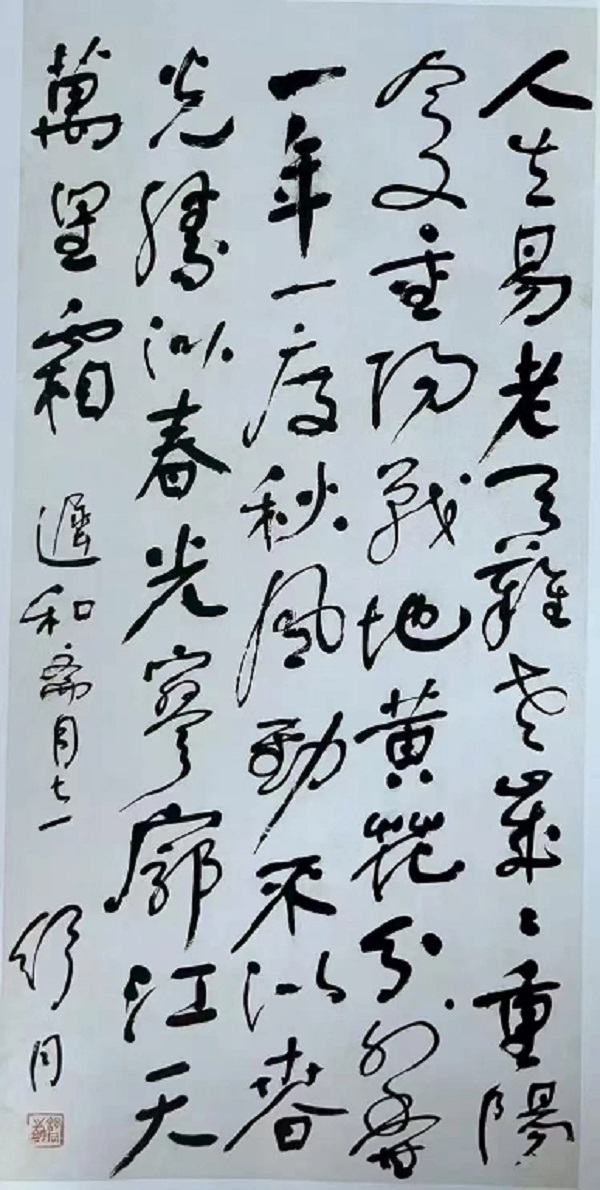 人生易老天難老歲〻重陽
今又重陽戰地黃花分外香
一年一度秋風勁不似春
光勝似春光寥廓江天
萬里霜 遲和齋同志 舒同
舒同